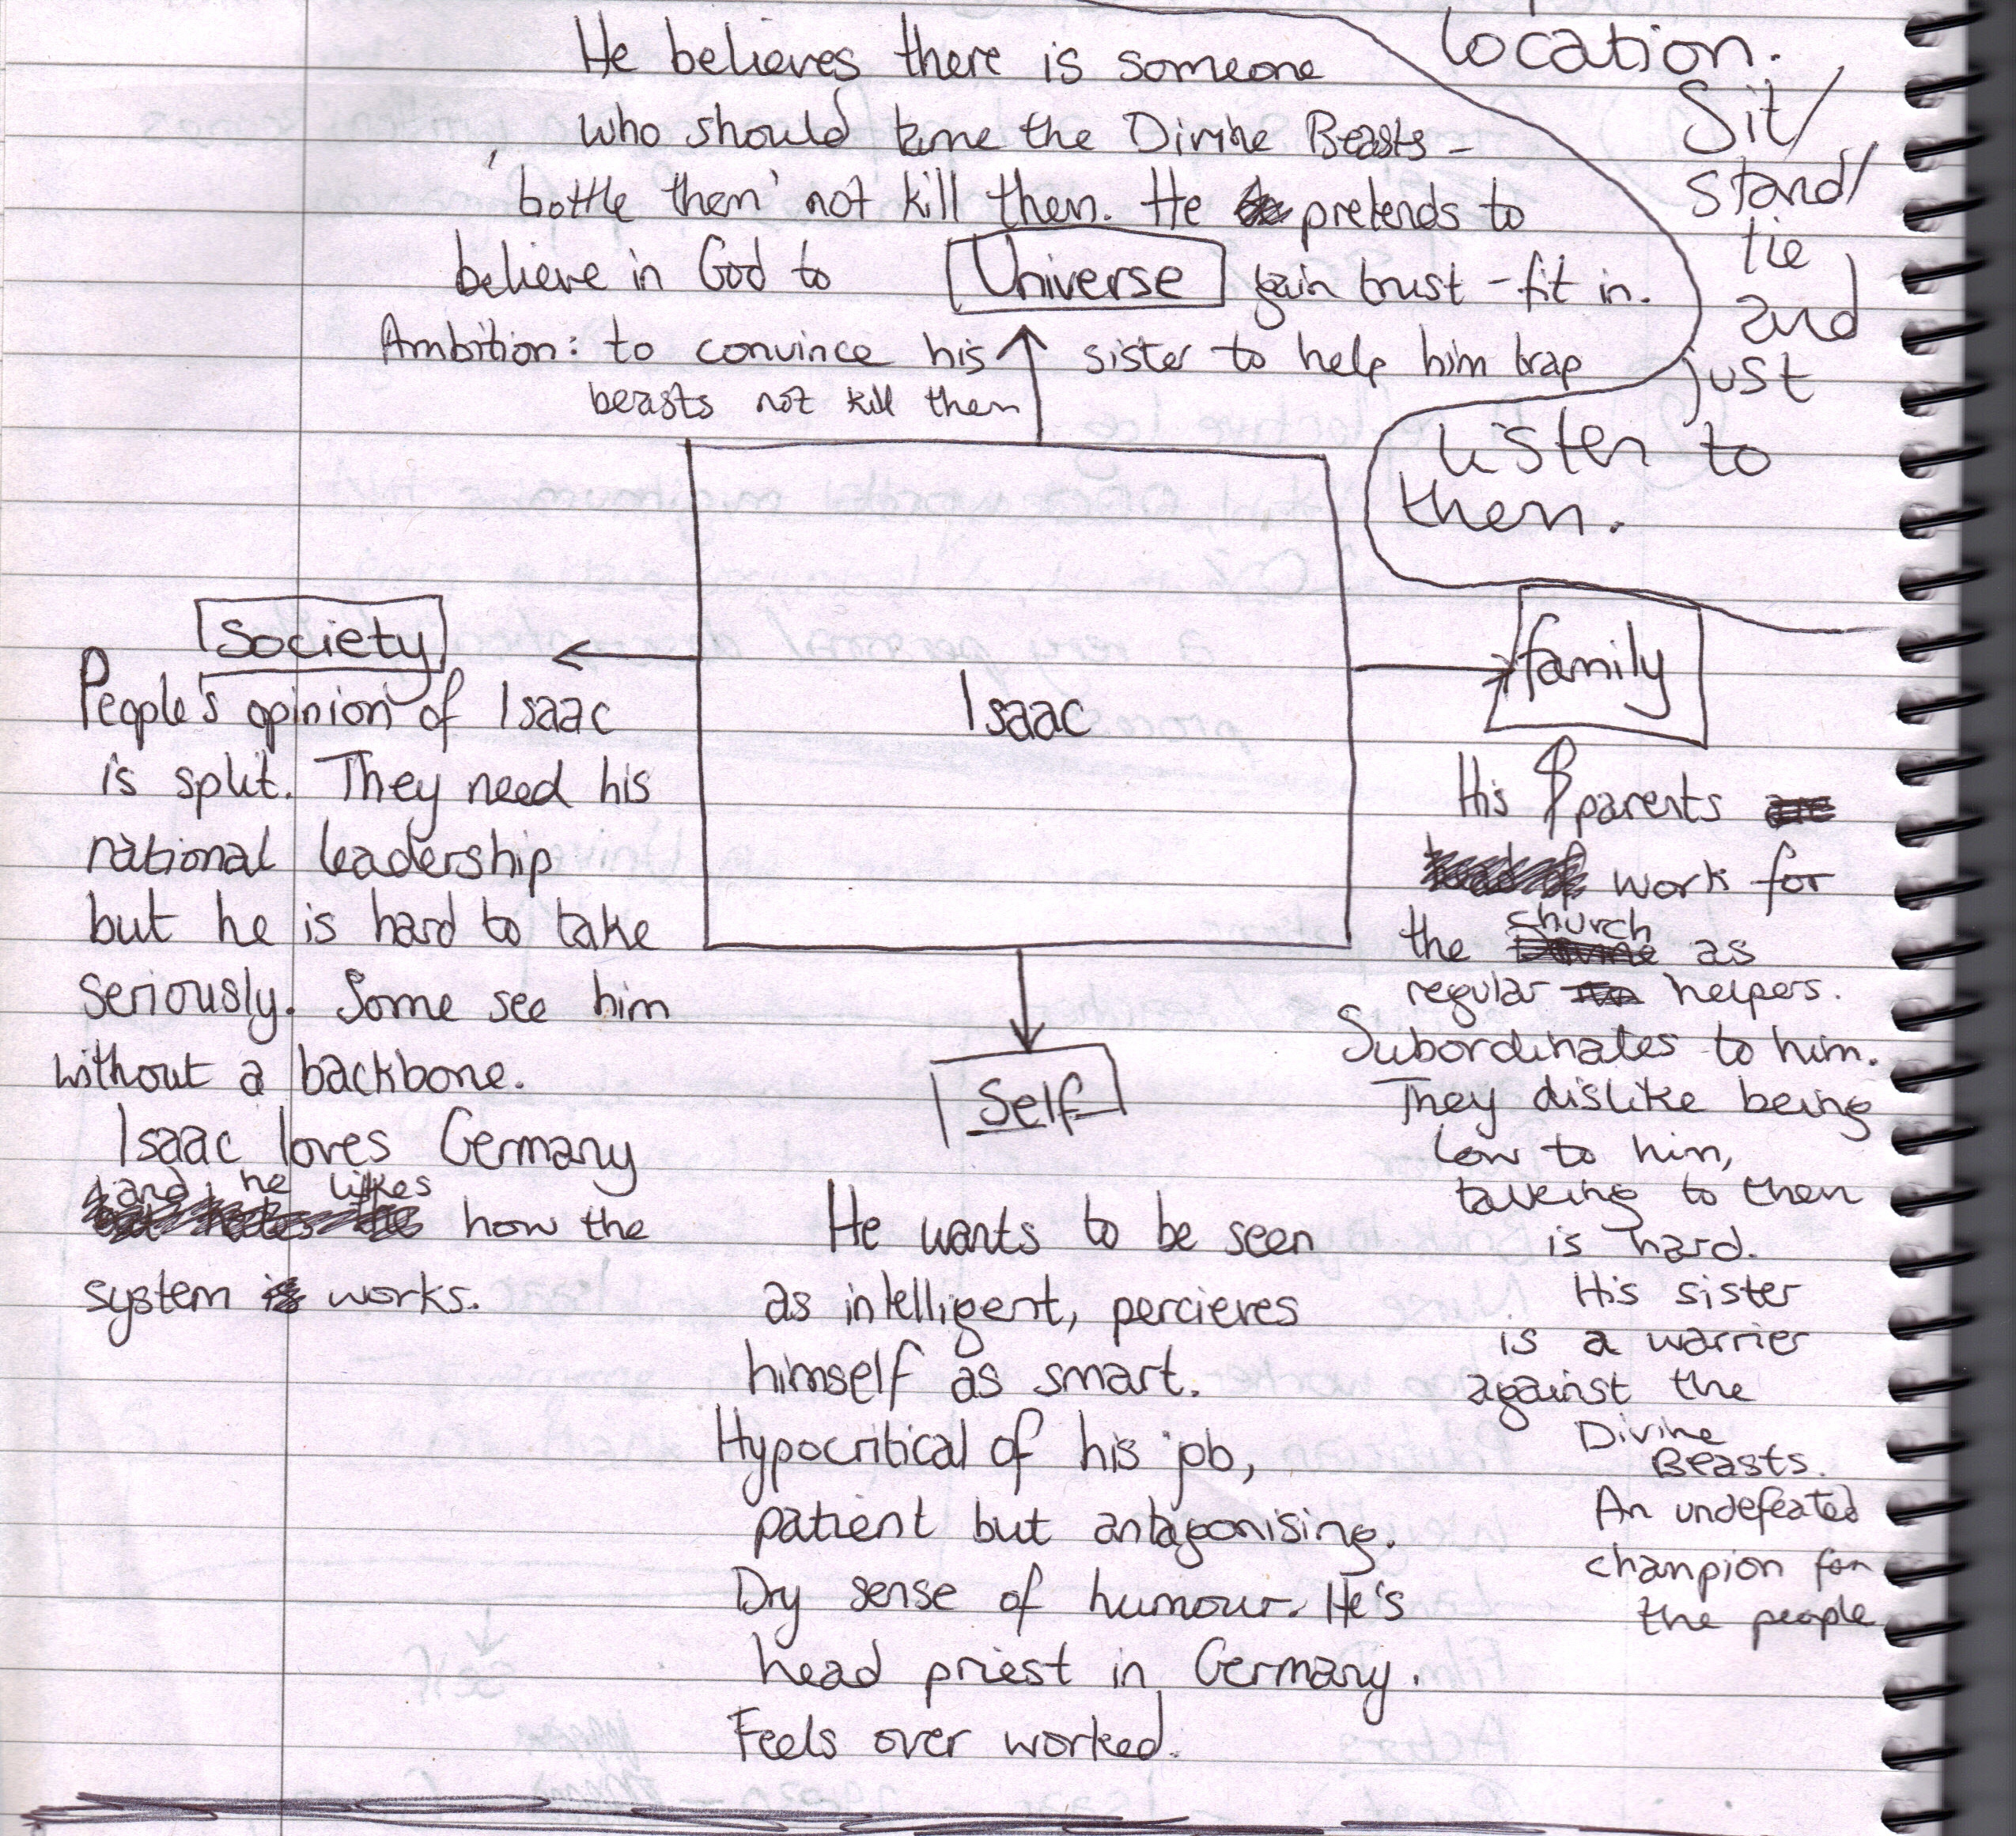 He believes there is someone
who should tame the Divine Beasts -
'bottle them' not kill them. He pretends to
believe in God to gain trust - fit in.
Universe
Ambition: to convince his sister to help him trap
beasts not kill them
location.
Sit/
stand/
lie
and
just
listen to
them.
Isaac
Society
People's opinion of Isaac
is split. They need his
national leadership
but he is hard to take
seriously. Some see him
without a backbone.
Isaac loves Germany
and he likes
how the
system works.
family
His parents
work for
the church as
regular helpers.
Subordinates to him.
They dislike being
low to him,
talking to them
is hard.
His sister
is a warrier
against the
Divine
Beasts.
An undefeated
champion for
the people
Self
He wants to be seen
as intelligent, percieves
himself as smart.
Hypocritical of his job,
patient but antagonising.
Dry sense of humour. He's
head priest in Germany.
Feels over worked.